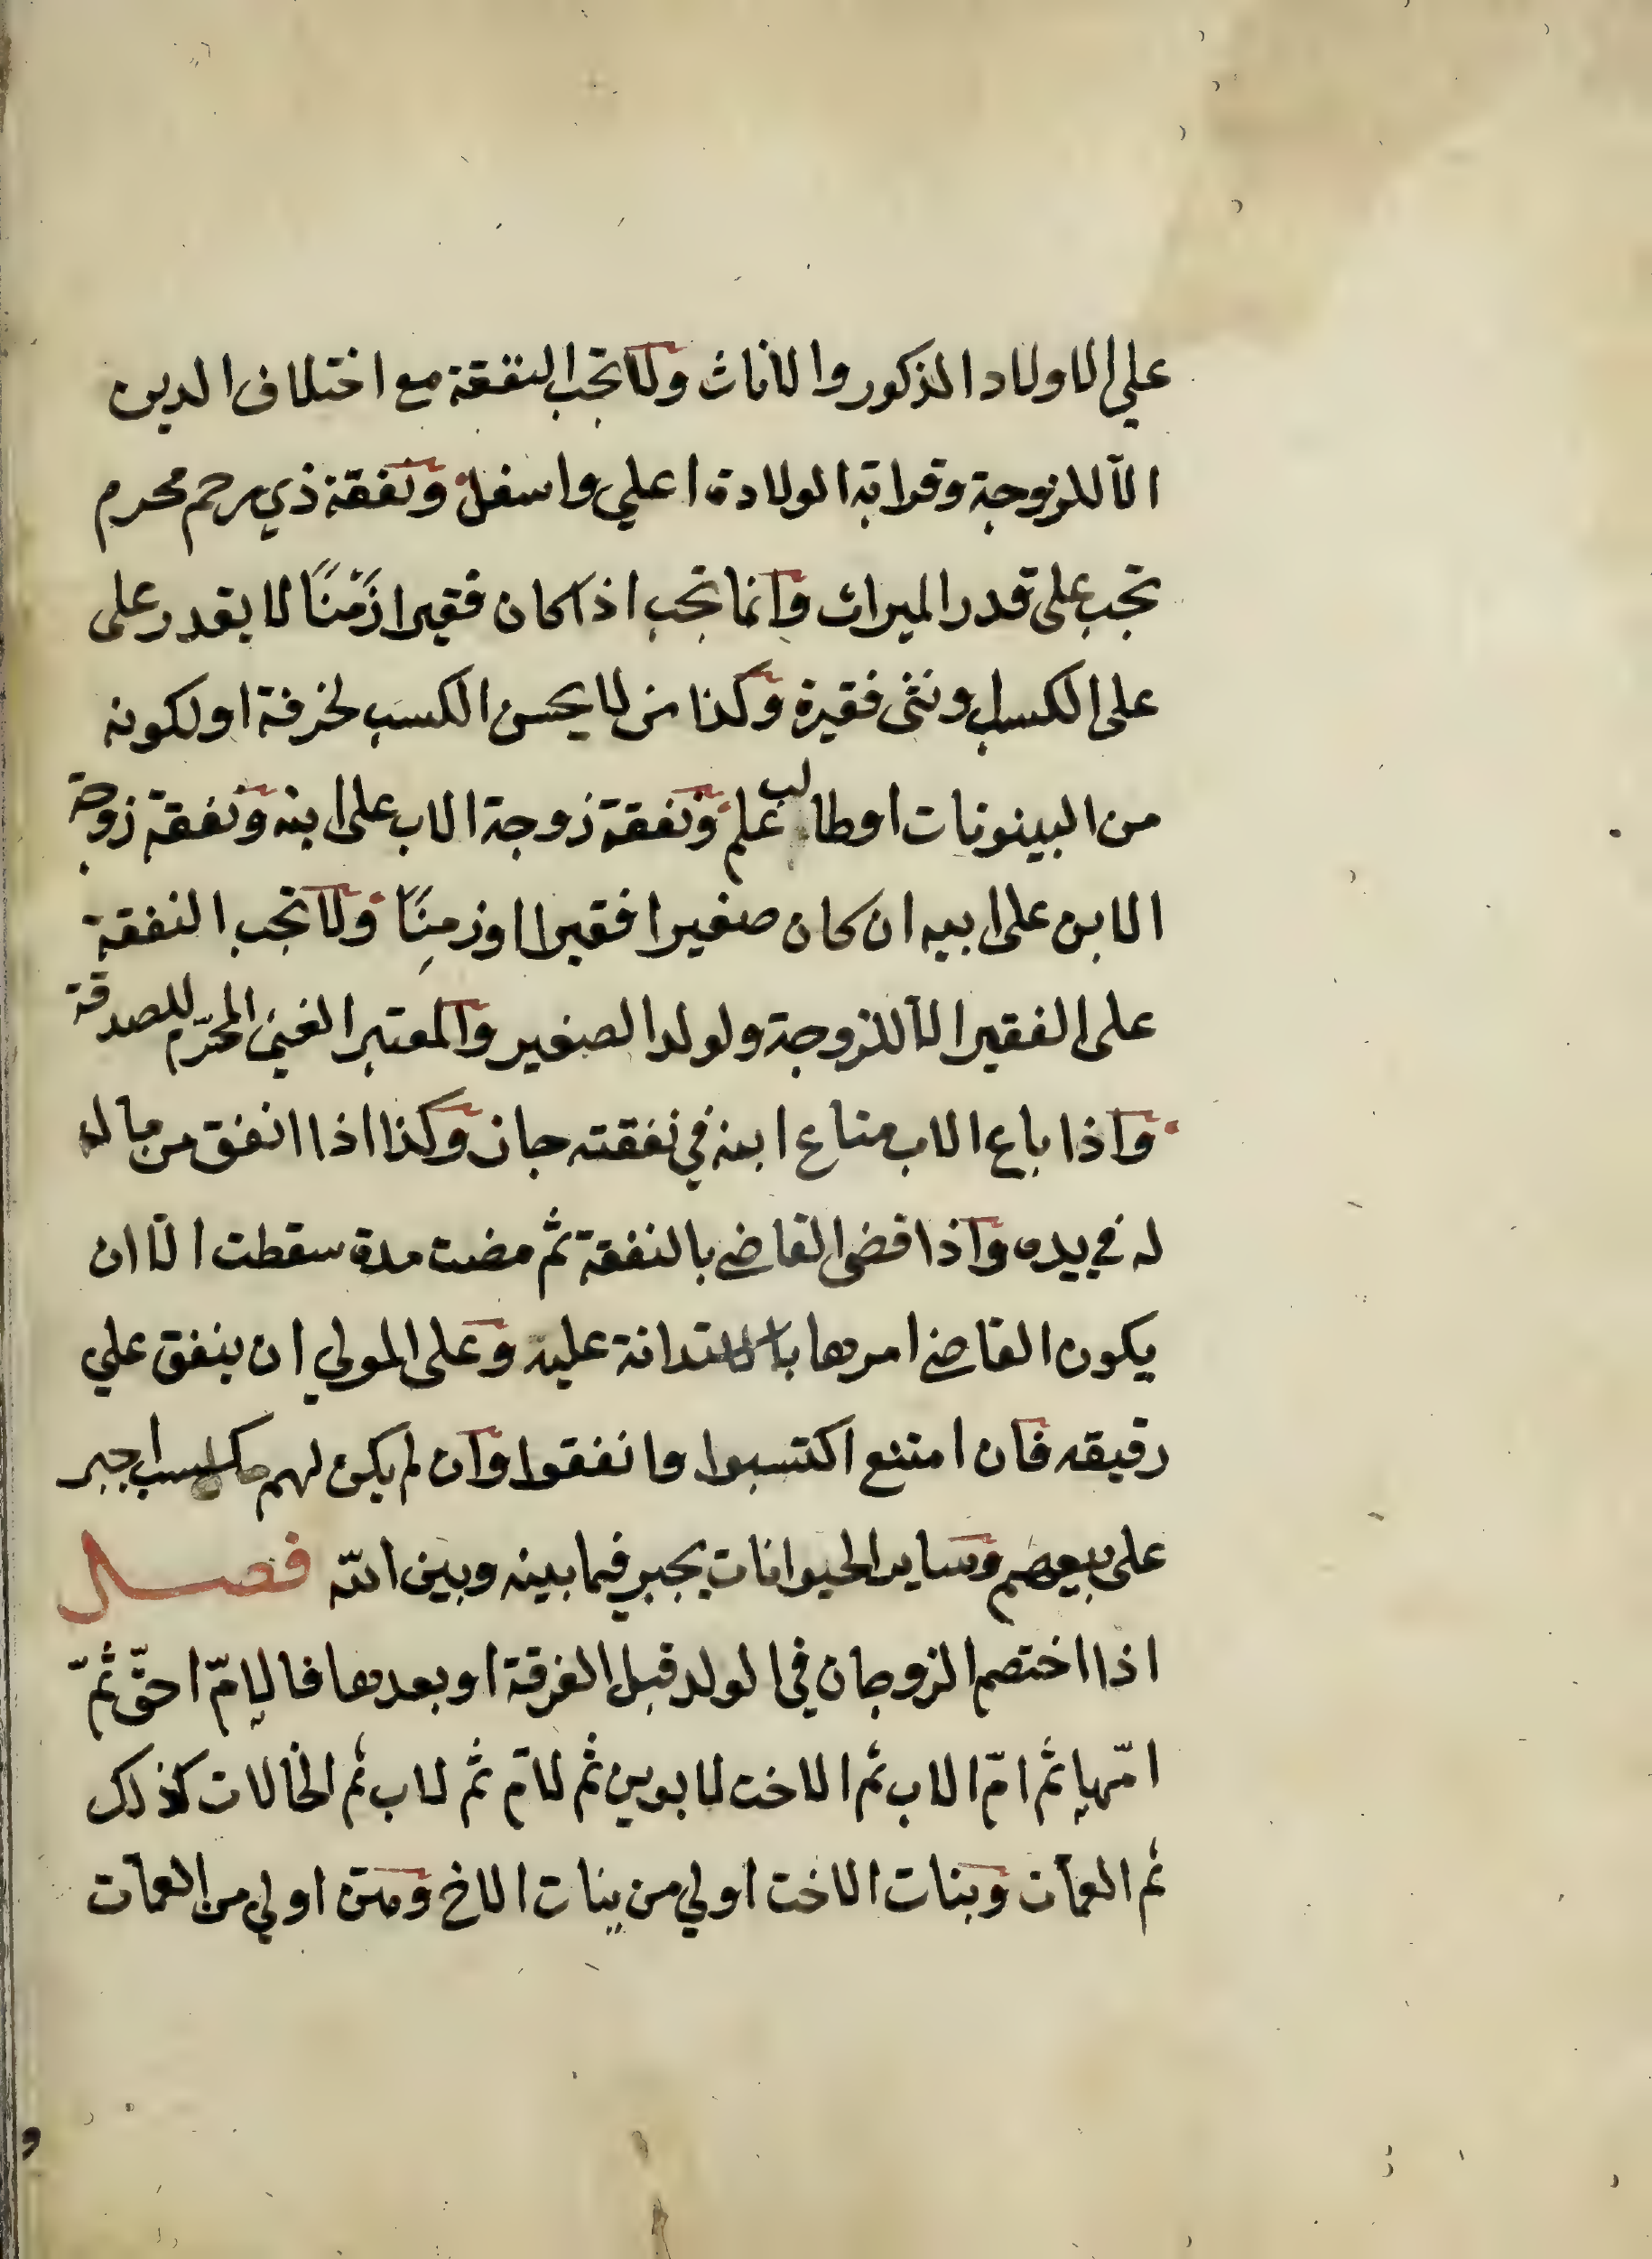 علي الاولاد الذكور والاناث ولا تجب النفقة مع اختلاف الدين
الا للزوجة وقرابة الولادة اعلي واسفل ونفقة ذي رحم محرم
تجب على قدر الميراث وانما تجب اذا كان فقيرا زَمْنًا لا يقدر على
على الكسب ونثى فقيرة وكذا من لا يحسن الكسب لخرفة او لكونه
من البينونات او طالب علم ونفقة زوجة الاب على ابنه ونفقة زوجة
الابن على ابيه ان كان صغيرا فقيرا او زمِنًا ولا تجب النفقة
على الفقير الا للزوجة ولولد الصغير والمعتبر الغنى المحرّم للصدقة
واذا باع الاب متاع ابنه في نفقته جاز وكذا اذا انفق من ماله
له في يده واذا قضى القاضي بالنفقة ثم مضت مدة سقطت الّا ان
يكون القاضي امرها بالاستدانة عليه وعلى المولي ان ينفق علي
رقيقه فان امتنع اكتسبوا وانفقوا وان لم يكن لهم كسب اجبر
على بيعهم وساير الحيوانات يجبر فيما بينه وبين الله فصل
اذا اختصم الزوجان في الولد قبل الفرقة او بعدها فالامّ احقّ ثمّ
امّها ثم امّ الاب ثم الاخت لابوين ثم لامّ ثم لاب ثم الخالات كذلك
ثم العمات وبنات الاخت اولي من بنات الاخ وهن اولي من العمات